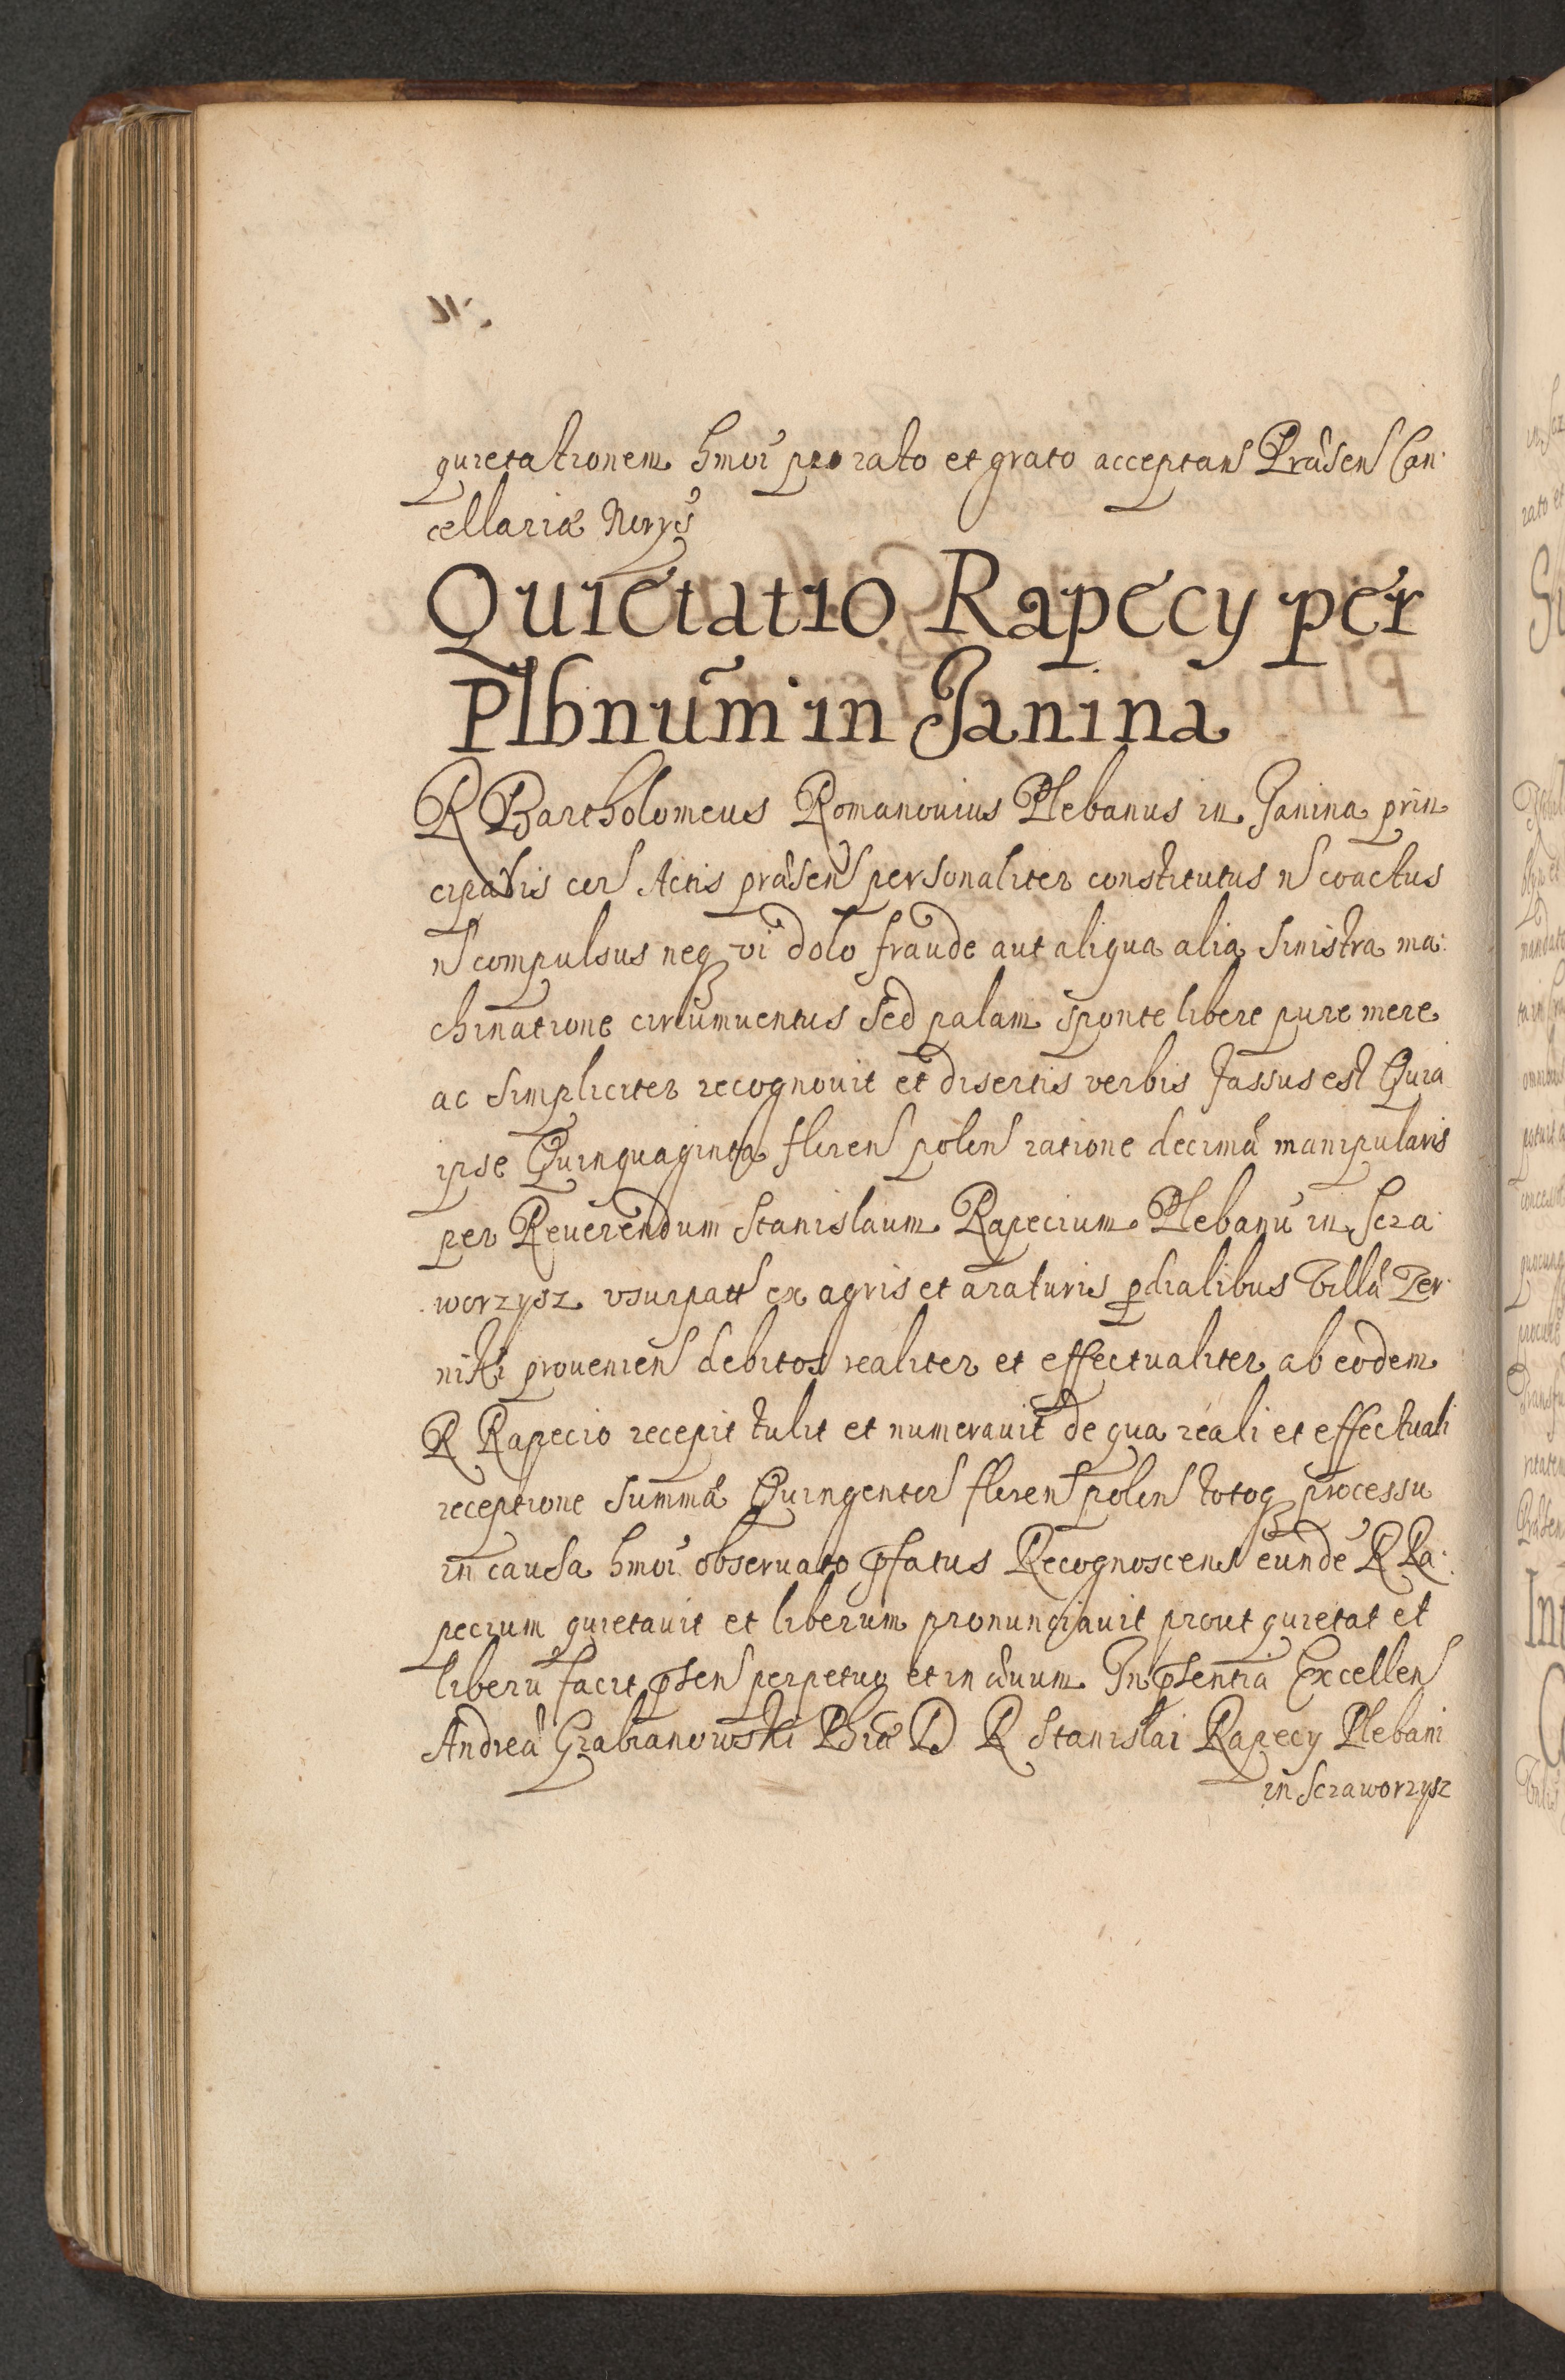 quietationem hmoi pro rato et grato acceptans Præsen Can:
cellariæ Norys
Quietatio Rapecy per
Plbnum in Janina
R Bartholomeus Romanouius Plebanus in Janina prin
cipalis cor Actis præsen personaliter constitutus n coactus
n compulsus neq vi dolo fraude aut aliqua alia sinistra ma:
chinatione circumuentus sed palam sponte libere pure mere
ac simpliciter recognouit et disertis verbis fassus est Quia
ipse Quinquaginta floren polon ratione decimæ manipularis
per Reuerendum Stanislaum Rapecium Plebanū in Scza
worzysz vsurpatt ex agris et araturis pdialibus Villæ Per
niki prouenien debitos realiter et effectualiter ab eodem
R Rapecio recepit tulit et numerauit de qua reali et effectuali
receptione summæ Quingentor floren polon totoq processu
in causa hmoi obseruato pfatus Recognoscens eundē R Ra:
pecium quietauit et liberum pronunciauit prout quietat et
liberū facit psen perpetuo et in æuum In psentia Excellen
Andreæ Grabianowski Phiæ D R Stanislai Rapecy Plebani
in Sczaworzysz